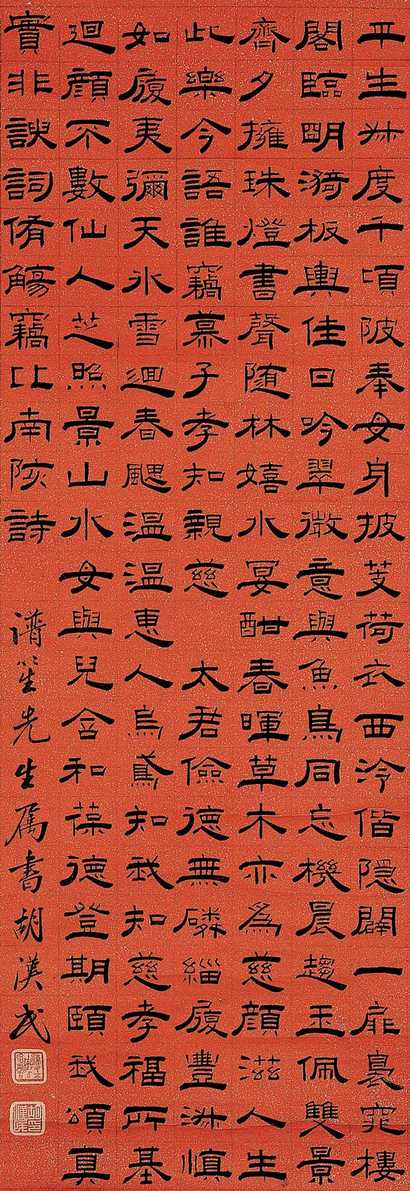 平生叔度千頃陂奉母身披芰荷衣西泠偕隱闢一扉裊窕樓
閣臨明漪板輿佳日吟翠微意與魚鳥同忘機晨趨玉佩雙景
齊夕擁珠燈書聲随林嬉水宴酣春暉草木亦為慈顏滋人生
此樂今語誰竊慕子孝知親慈 太君儉德無磷緇履豐慎
如履夷彌天冰雪迴春颸溫溫惠人烏鳶知我知慈孝福所基
迴顏不數仙人芝照景山水母與兒含和葆德登期頤我頌真
實非諛詞侑觴竊比南陔詩
譜笙先生属書胡漢民